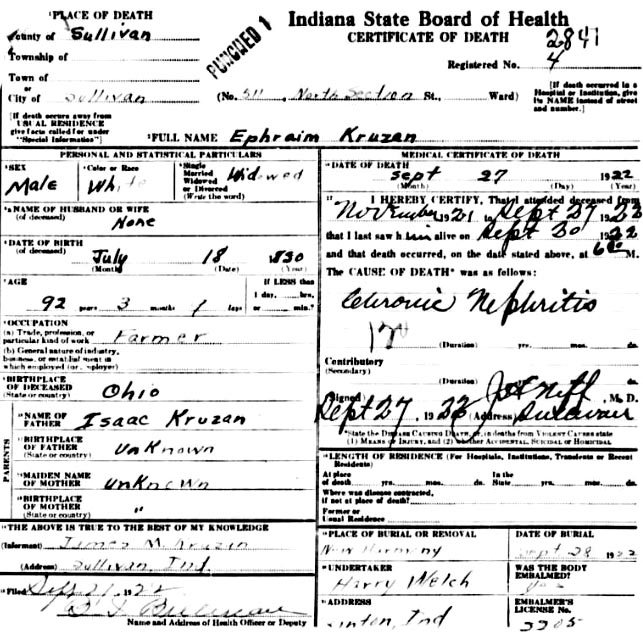 ¹PLACE OF DEATH
County of Sullivan
Township of
Town of
or
City of Sullivan
PUNCHED 1
Indiana State Board of Health
CERTIFICATE OF DEATH
2841
Registered No. 4
(No. 511, North Section St., Ward)
[If death occurred in a Hospital or Institution, give its NAME instead of street and number.]
[If death occurs away from USUAL RESIDENCE give facts called for under "Special Information"]
²FULL NAME Ephraim Kruzan
PERSONAL AND STATISTICAL PARTICULARS
³SEX
Male
⁴Color or Race
White
⁵Single
Married
Widowed
or Divorced
(Write the word)
Widowed
NAME OF HUSBAND OR WIFE
(of deceased)
None
DATE OF BIRTH
(of deceased)
July 18 830
(Month) (Date) (Year)
AGE
92 years 3 months 1 days
If LESS than
1 day, hrs.
or min.?
OCCUPATION
(a) Trade, profession, or
particular kind of work Farmer
(b) General nature of industry,
business, or establishment in
which employed (or employer)
BIRTHPLACE
OF DECEASED
(State or country) Ohio
PARENTS
NAME OF
FATHER Isaac Kruzan
BIRTHPLACE
OF FATHER
(State or country) unKnown
MAIDEN NAME
OF MOTHER unKnown
BIRTHPLACE
OF MOTHER
(State or country) "
THE ABOVE IS TRUE TO THE BEST OF MY KNOWLEDGE
(Informant) James M. Kruzan
(Address) Sullivan, Ind.
Filed
192
Name and Address of Health Officer or Deputy
MEDICAL CERTIFICATE OF DEATH
DATE OF DEATH
Sept 27 1922
(Month) (Day) (Year)
I HEREBY CERTIFY, That I attended deceased from
November 1921 to Sept 27 1922
that I last saw him alive on Sept 20 1922
and that death occurred, on the date stated above, at 6 M.
The CAUSE OF DEATH* was as follows:
Chronic Nephritis
(Duration) yrs. mos. ds.
Contributory
(Secondary)
(Duration) yrs. mos. ds.
(Signed) Neff M. D.
Sept 27, 1922 (Address) Sullivan
*State the DISEASE CAUSING DEATH, or, in deaths from VIOLENT CAUSES state
(1) MEANS OF INJURY, and (2) whether ACCIDENTAL, SUICIDAL or HOMICIDAL
LENGTH OF RESIDENCE (For Hospitals, Institutions, Transients or Recent
Residents)
At place
of death yrs. mos. ds.
In the
State yrs. mos. ds.
Where was disease contracted,
if not at place of death?
Former or
Usual Residence
PLACE OF BURIAL OR REMOVAL
New Harmony
DATE OF BURIAL
Sept 28 1922
UNDERTAKER
Harry Welch
WAS THE BODY
EMBALMED?
yes
ADDRESS
Linton, Ind
EMBALMER'S
LICENSE No.